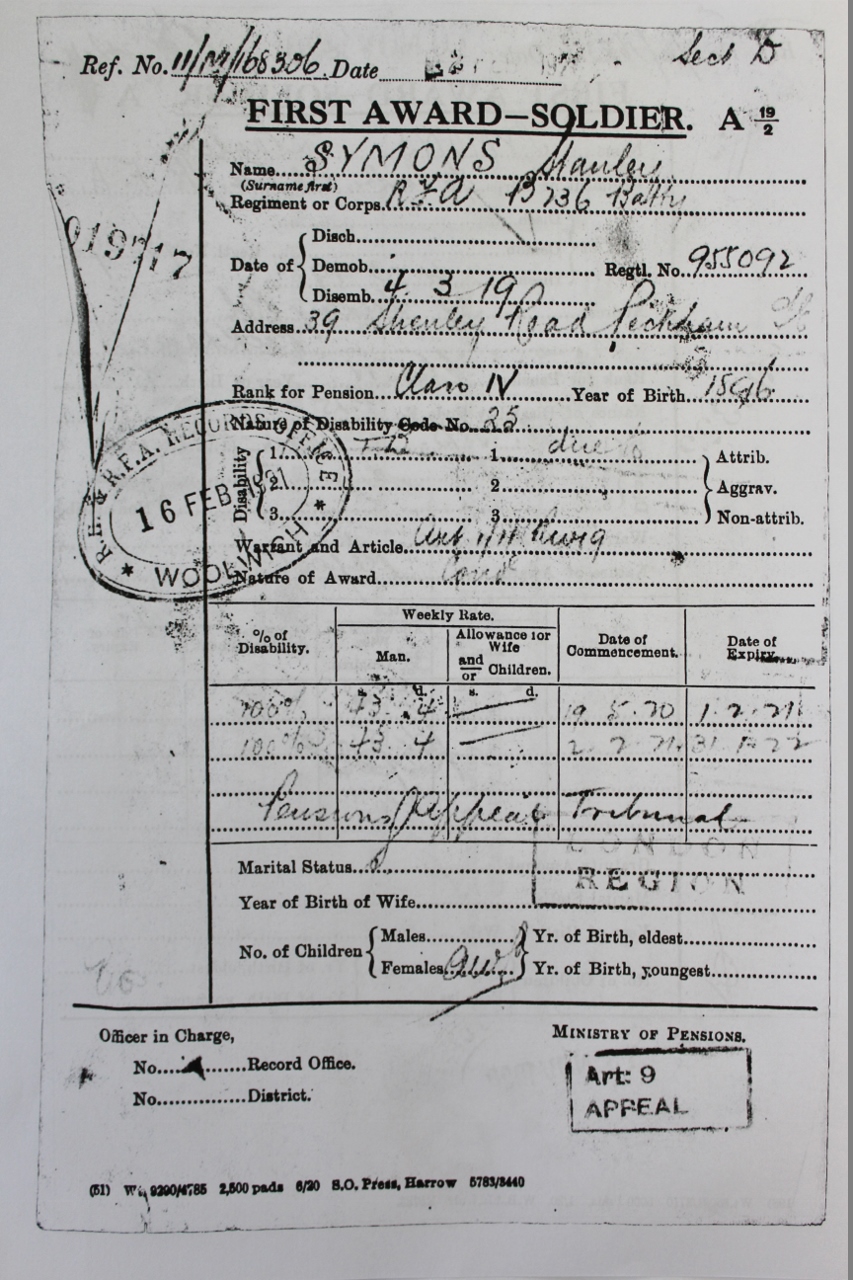 Ref. No. 11/M/168306 Date
Sect D
FIRST AWARD—SOLDIER. A 19/2
Name SYMONS Stanley
(Surname first)
Regiment or Corps. RFA B236 Batty
019717
Disch
Date of Demob. Regtl. No. 955092
Disemb. 4 3 19
Address 39 Shenley Road Peckham
Rank for Pension Class IV Year of Birth 1896
Nature of Disability Code No. 25
R.E. & R.F.A. RECORDS OFFICE
16 FEB 1921
★ WOOLWICH ★
Disability
1. 1. due Attrib.
2. 2 Aggrav.
3. 3 Non-attrib.
Warrant and Article Art 1
Nature of Award Cond
Weekly Rate.
% of Disability. Man. Allowance for Wife and/or Children. Date of Commencement. Date of Expiry.
s. d. s. d.
100% 43. 4 19 5 20 1 2 21
100% 43. 4 2 2 21 31 1 22
Pensions Appeal Tribunal
LONDON
REGION
Marital Status
Year of Birth of Wife
No. of Children Males Yr. of Birth, eldest
Females Yr. of Birth, youngest
Officer in Charge,
No. Record Office.
No. District.
MINISTRY OF PENSIONS.
Art: 9
APPEAL
(51) W 9290/4785 2,500 pads 6/20 S.O. Press, Harrow 5783/3440